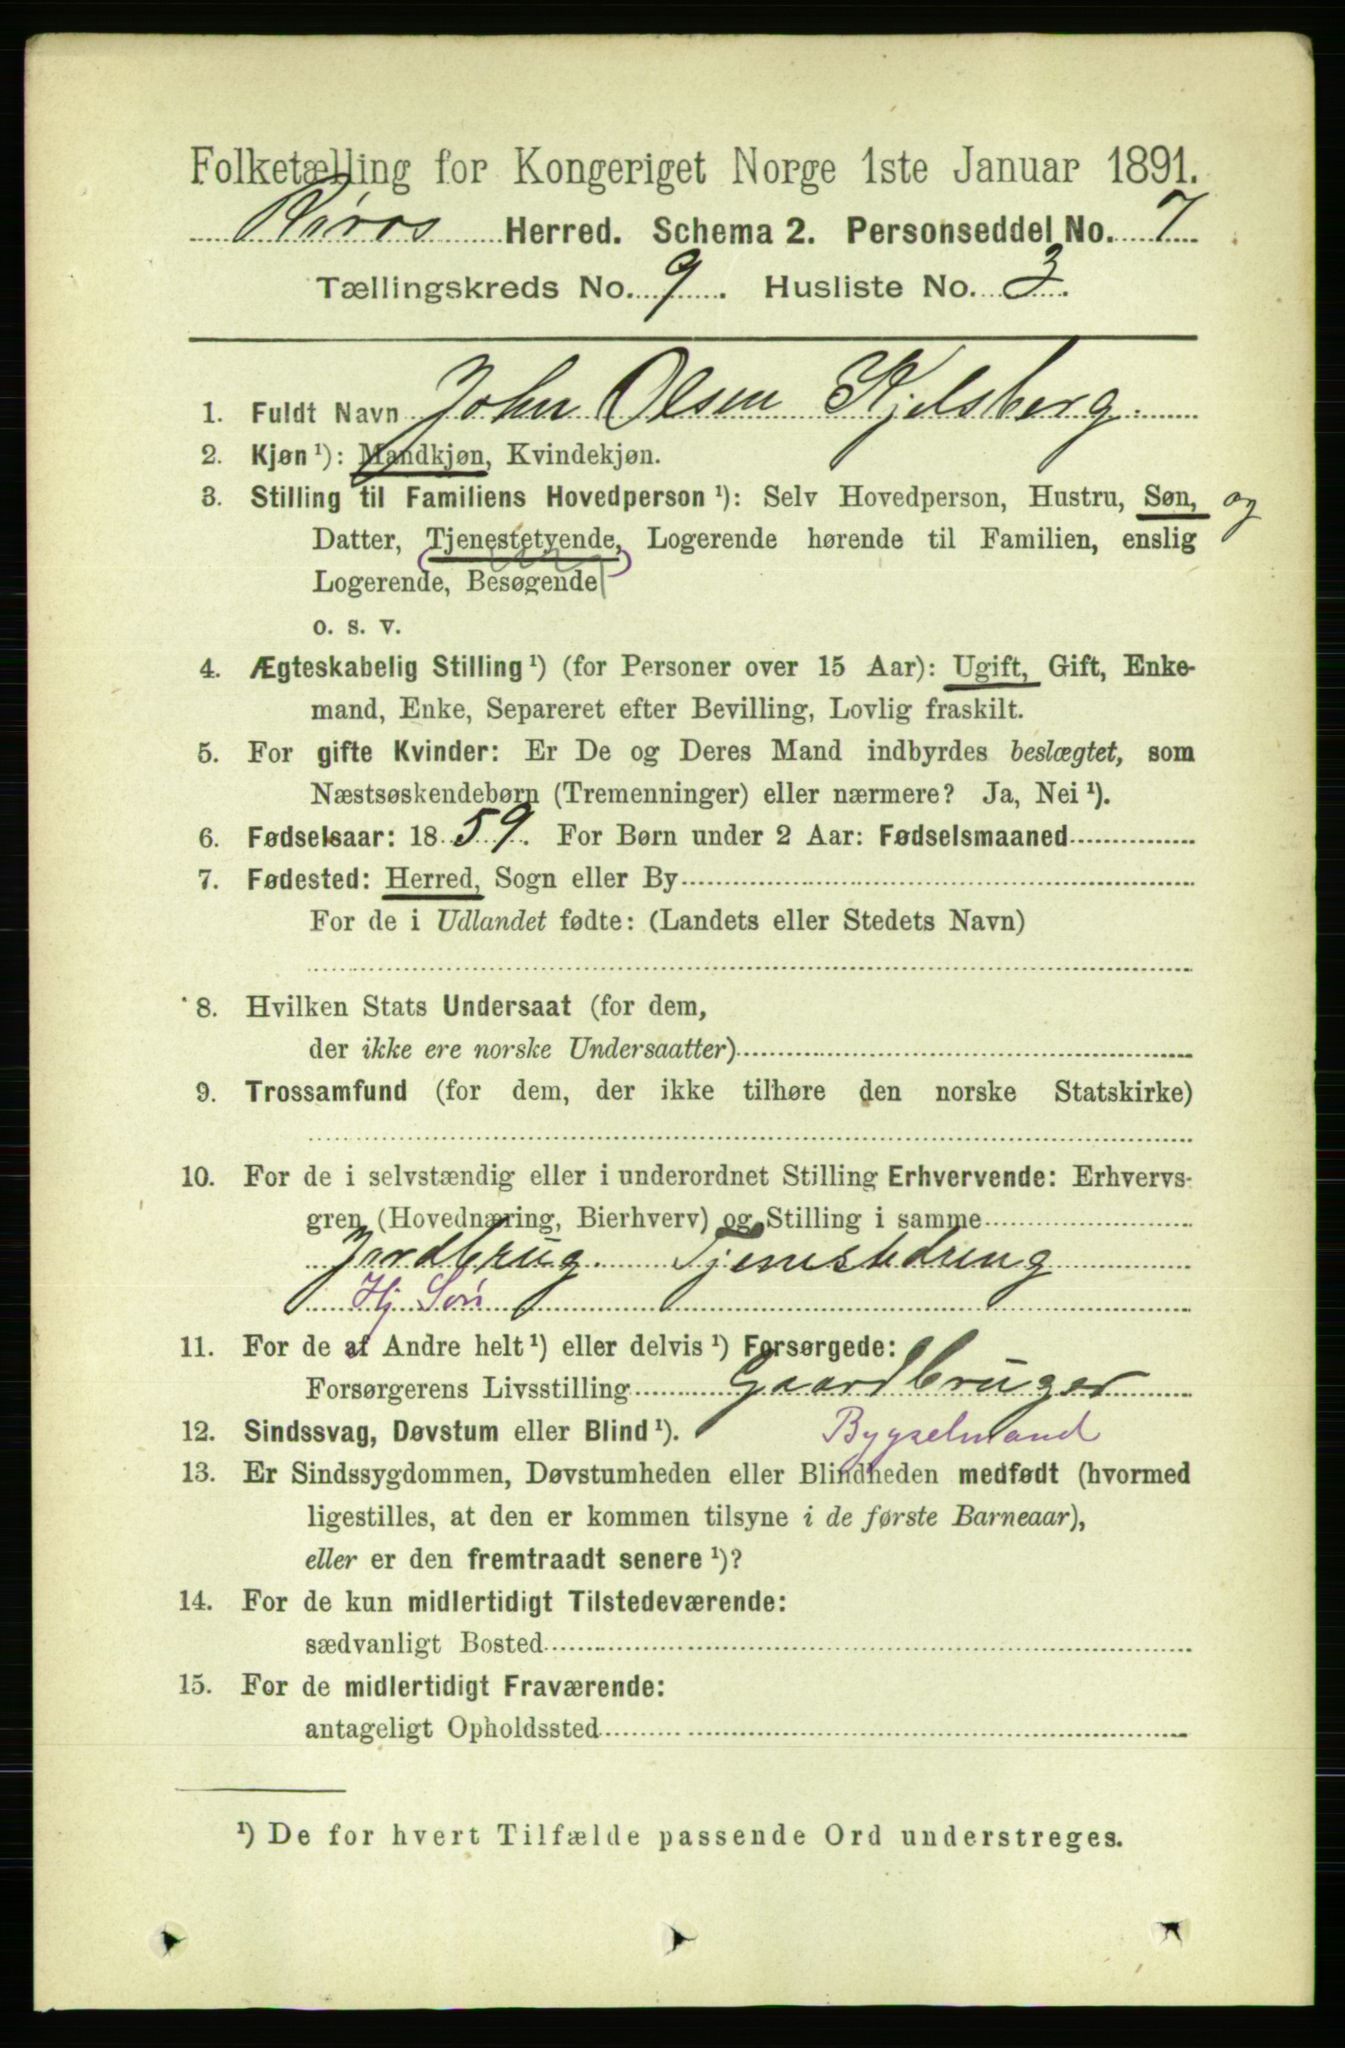 Folketælling for Kongeriget Norge 1ste Januar 1891.
Røros Herred. Schema 2. Personseddel No. 7
Tællingskreds No. 9. Husliste No. 3.
1. Fuldt Navn John Olsen Kjelsberg
2. Kjøn ¹): Mandkjøn, Kvindekjøn.
3. Stilling til Familiens Hovedperson ¹): Selv Hovedperson, Hustru, Søn, og
Datter, Tjenestetyende, Logerende hørende til Familien, enslig
Logerende, Besøgende
o. s. v.
4. Ægteskabelig Stilling ¹) (for Personer over 15 Aar): Ugift, Gift, Enke-
mand, Enke, Separeret efter Bevilling, Lovlig fraskilt.
5. For gifte Kvinder: Er De og Deres Mand indbyrdes beslægtet, som
Næstsøskendebørn (Tremenninger) eller nærmere? Ja, Nei ¹).
6. Fødselsaar: 1859. For Børn under 2 Aar: Fødselsmaaned
7. Fødested: Herred, Sogn eller By
For de i Udlandet fødte: (Landets eller Stedets Navn)
8. Hvilken Stats Undersaat (for dem,
der ikke ere norske Undersaatter)
9. Trossamfund (for dem, der ikke tilhøre den norske Statskirke)
10. For de i selvstændig eller i underordnet Stilling Erhvervende: Erhvervs-
gren (Hovednæring, Bierhverv) og Stilling i samme
Jordbrug. Tjenestedreng
Hj Søn
11. For de af Andre helt ¹) eller delvis ¹) Forsørgede:
Forsørgerens Livsstilling Gaardbruger
12. Sindssvag, Døvstum eller Blind ¹). Bygselmand
13. Er Sindssygdommen, Døvstumheden eller Blindheden medfødt (hvormed
ligestilles, at den er kommen tilsyne i de første Barneaar),
eller er den fremtraadt senere ¹)?
14. For de kun midlertidigt Tilstedeværende:
sædvanligt Bosted
15. For de midlertidigt Fraværende:
antageligt Opholdssted
¹) De for hvert Tilfælde passende Ord understreges.